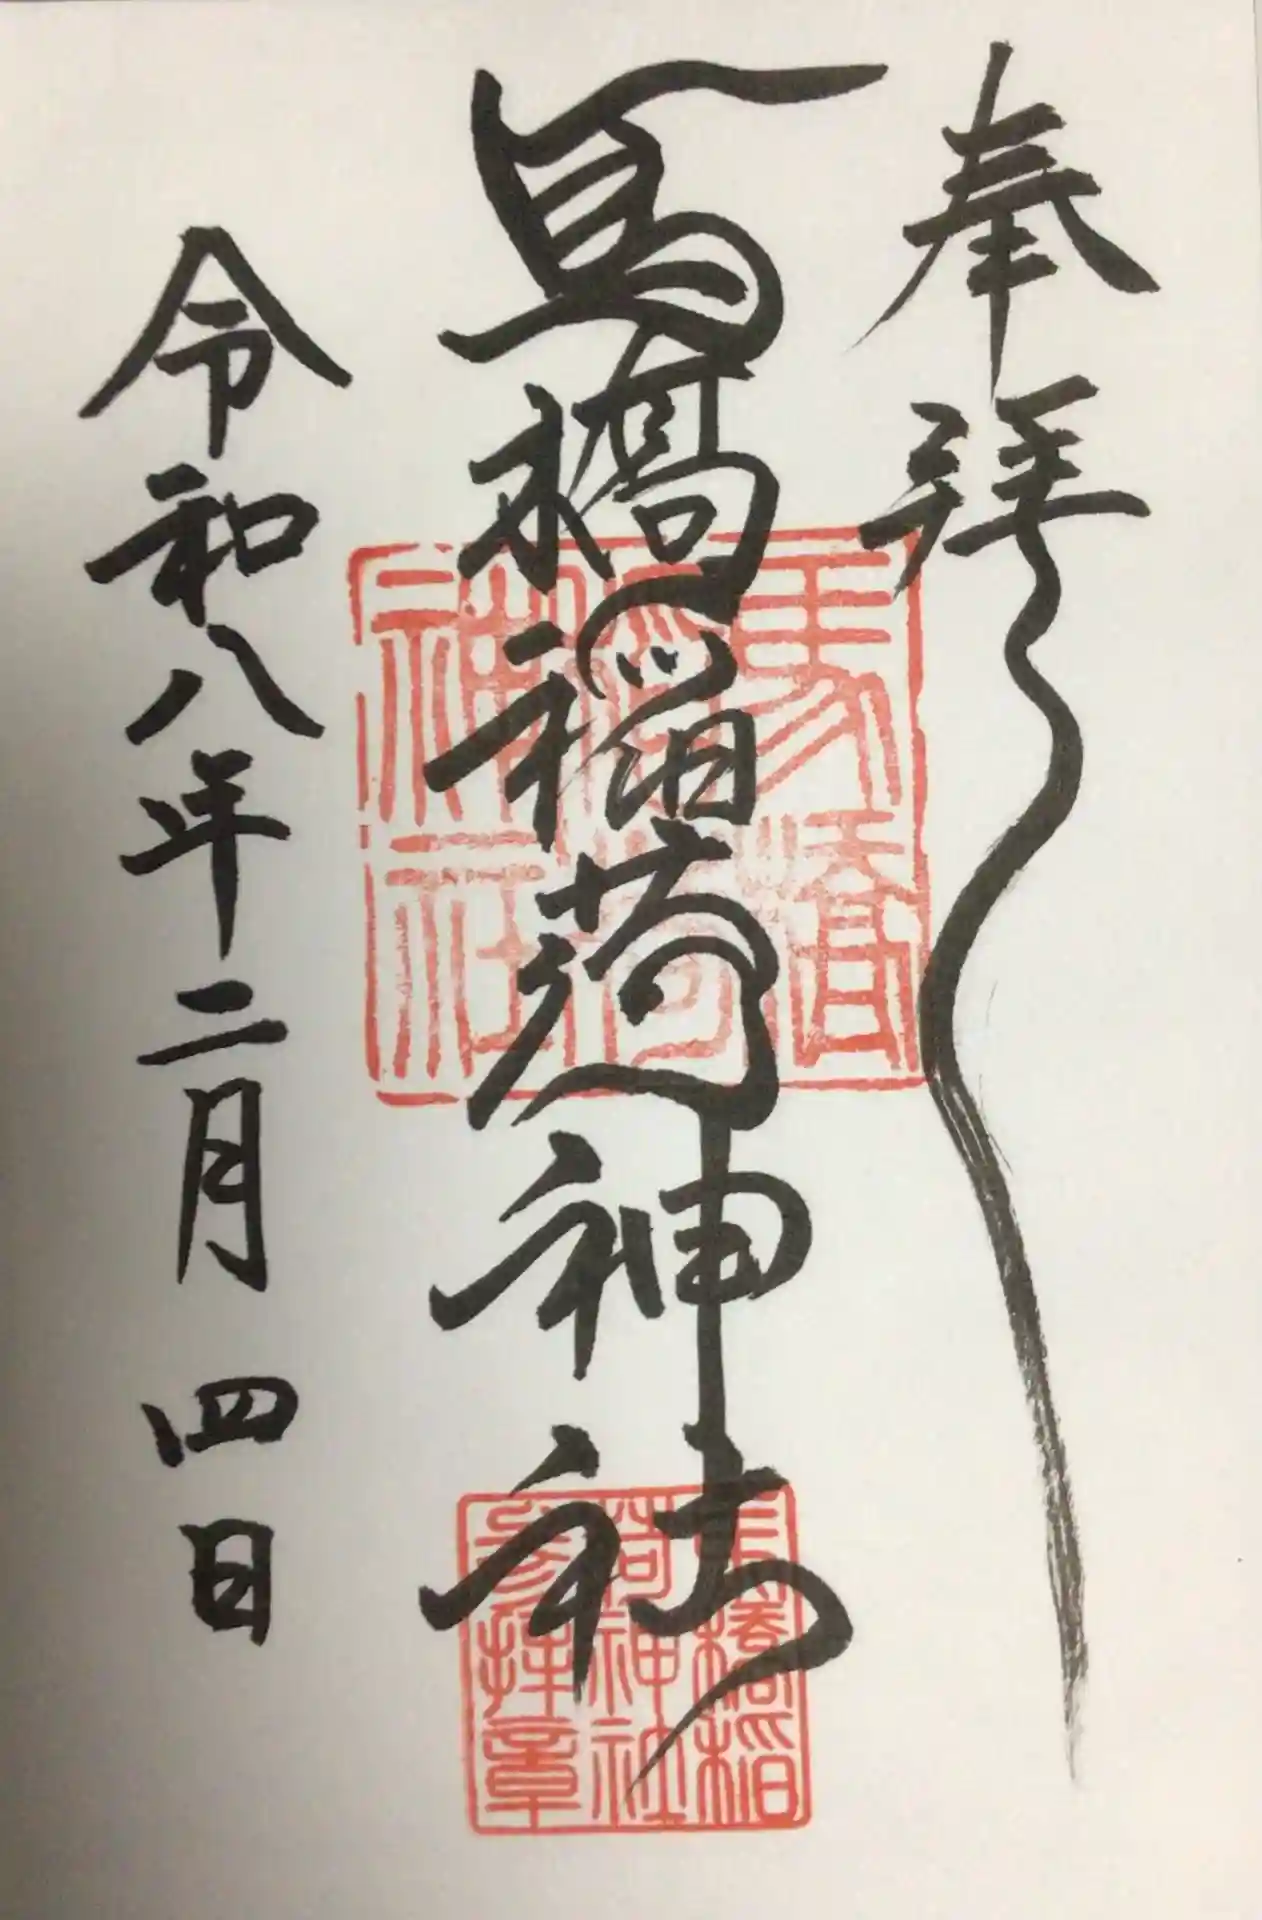 奉拝
馬橋稲荷神社
令和八年二月四日
馬橋
稲荷
神社
馬橋稲
荷神社
参拝章